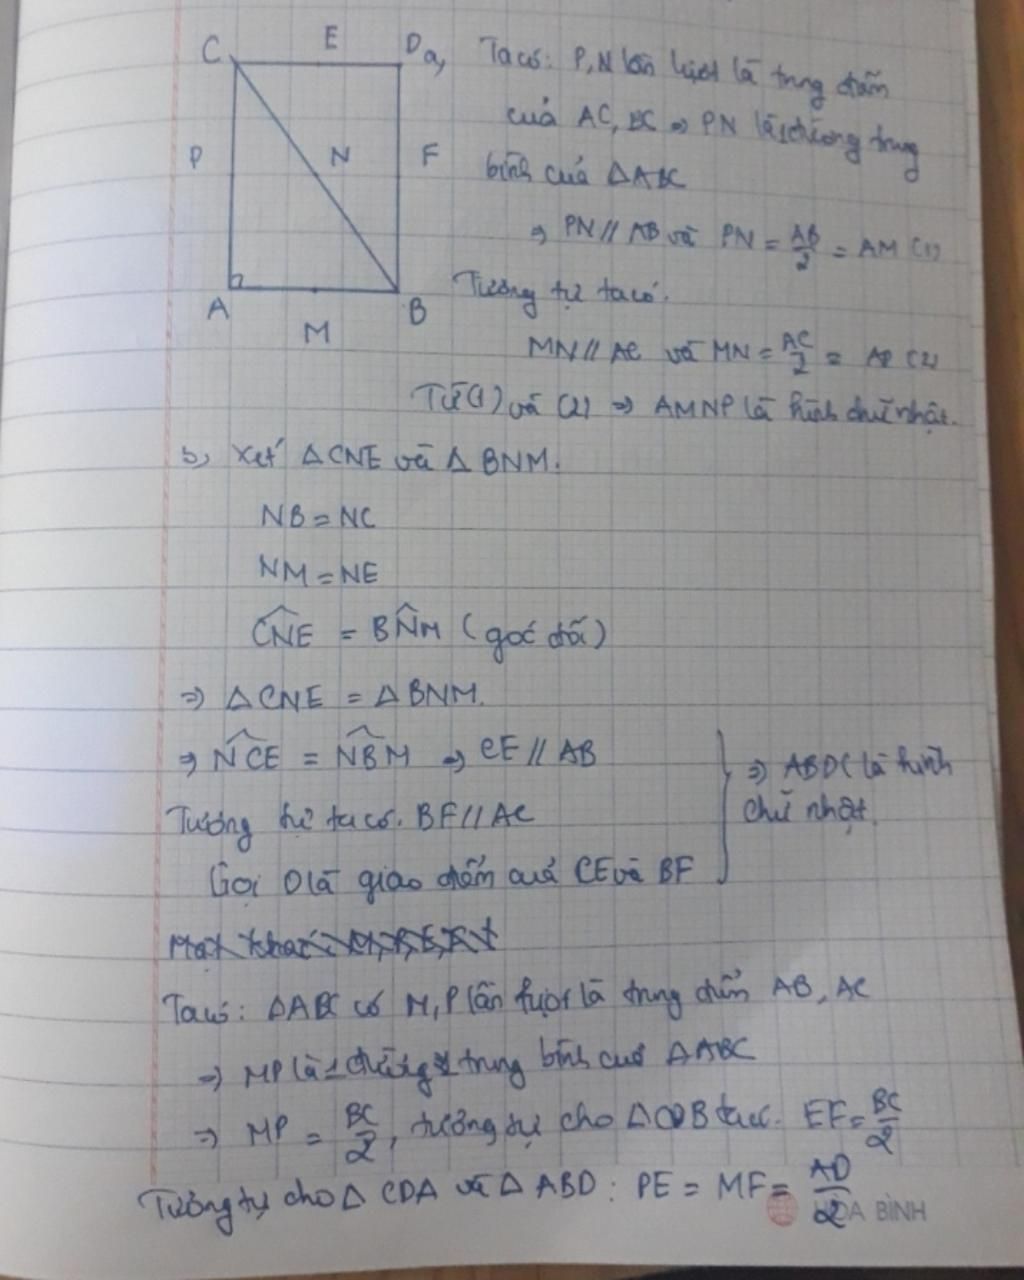 C E D a, Ta có: P, N lần lượt là trung điểm
của AC, BC ⇒ PN là 1 đường trung
P N F bình của ΔABC
⇒ PN // AB và PN = AB/2 = AM (1)
A M B Tương tự ta có.
MN // AC và MN = AC/2 = AP (2)
Từ (1) và (2) ⇒ AMNP là hình chữ nhật.
b, Xét ΔCNE và ΔBNM.
NB = NC
NM = NE
CNE = BNM (góc đối)
⇒ ΔCNE = ΔBNM.
⇒ NCE = NBM ⇒ CE // AB
Tương tự ta có. BF // AC
Gọi D là giao điểm của CE và BF
⇒ ABDC là hình
chữ nhật
Ta có: ΔABC có M, P lần lượt là trung điểm AB, AC
⇒ MP là 1 đường trung bình của ΔABC
⇒ MP = BC/2, tương tự cho ΔCDB EF = BC/2
Tương tự cho Δ CDA và Δ ABD: PE = MF = AD/2
BÌNH